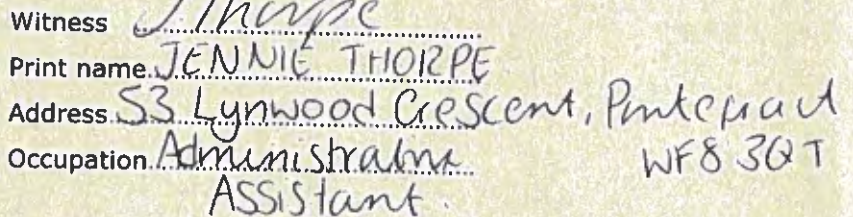 Witness J Thorpe
Print name JENNIE THORPE
Address 53 Lynwood Crescent, Pontefract
Occupation Administrative WF8 3QT
Assistant.